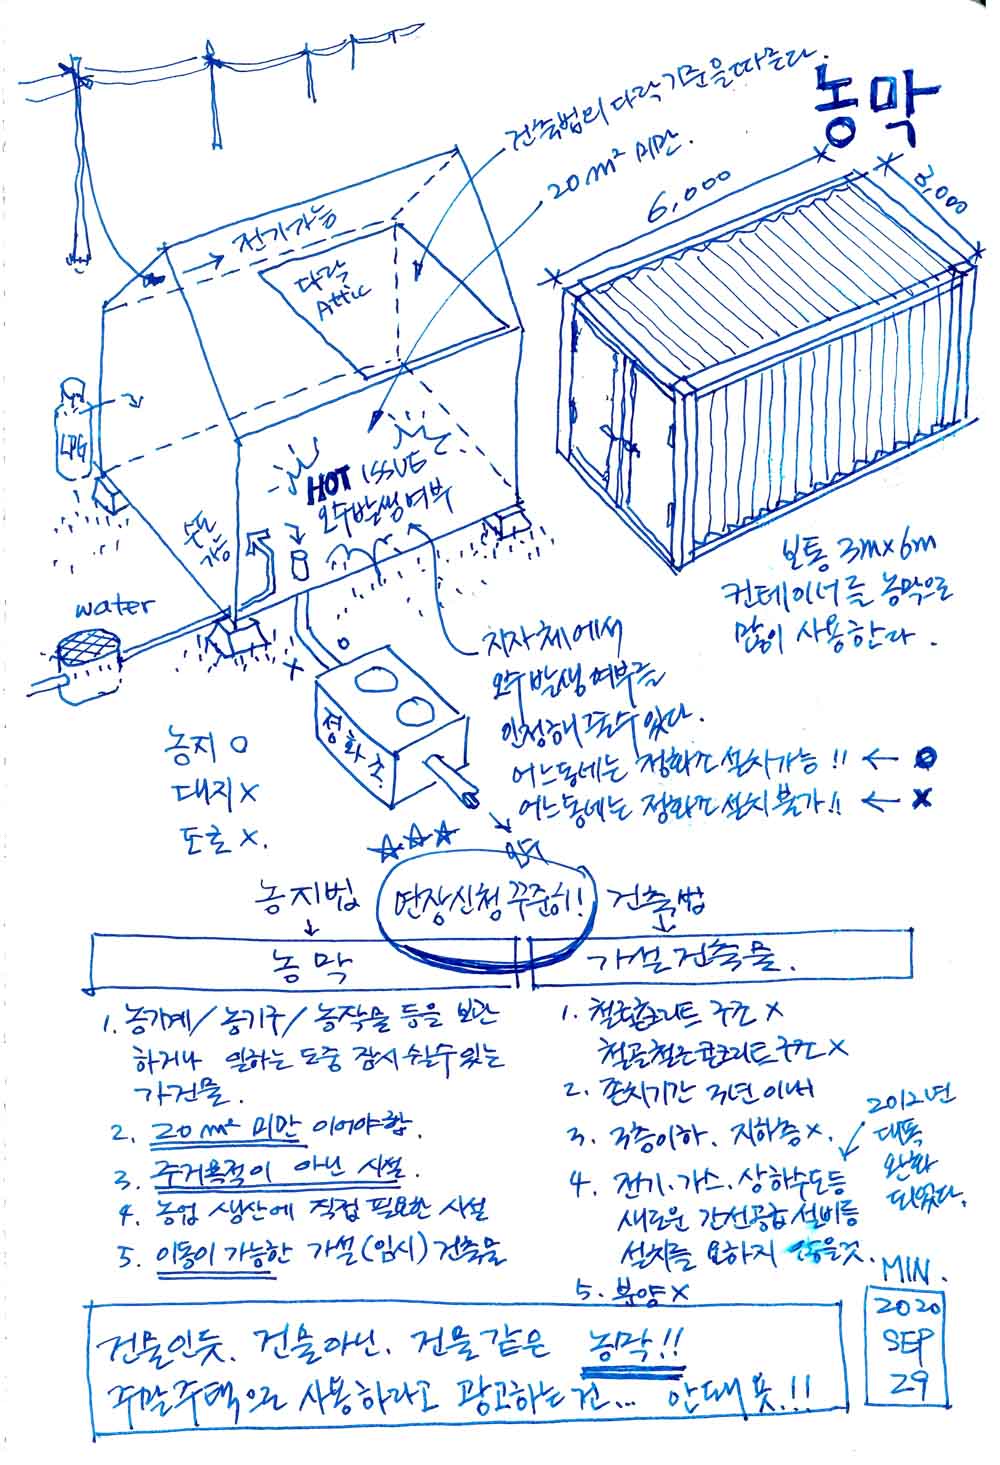 농막
건축법의 다락기준을 따른다.
20m² 미만.
6,000
3,000
전기가능
다락
Attic
LPG
HOT ISSUE
오수발생여부
수도
가능
water
보통 3m×6m
컨테이너를 농막으로
많이 사용한다.
지자체에서
오수발생여부를
인정해 줄수 있다.
어느동네는 정화조 설치가능!! ← O
어느동네는 정화조 설치불가!! ← X
정화조
농지 O
대지 X
도로 X.
농지법
연장신청 꾸준히!
건축법
농막
가설건축물.
1. 농기계/농기구/농작물 등을 보관
하거나 일하는 도중 잠시 쉴수있는
가건물.
2. 20m² 미만 이어야함.
3. 주거용적이 아닌 시설.
4. 농업 생산에 직접 필요한 시설
5. 이동이 가능한 가설(임시)건축물
1. 철근콘크리트 구조 X
철골철근콘크리트구조 X
2. 존치기간 3년 이내
3. 3층이하. 지하층 X.
4. 전기.가스.상하수도등
새로운 간선공급설비등
설치를 요하지 않을것.
5. 분양 X
2012년
대폭
완화
되었다.
건물인듯. 건물아닌. 건물같은 농막!!
주말주택으로 사용하라고 광고하는건... 안돼요.!!!
MIN.
2020
SEP
29